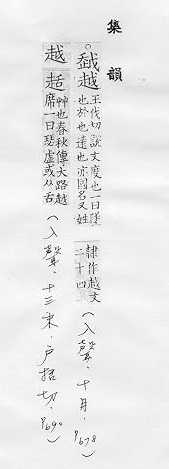 集韻
。越
王伐切說文度也一曰墜
也於也遠也亦國名又姓
隸作越文
二十四
(入聲，十月，P678)
越趏
艸也春秋傳大路越
席一曰瑟虛或从舌
(入聲，十三末，戶括切，P690)